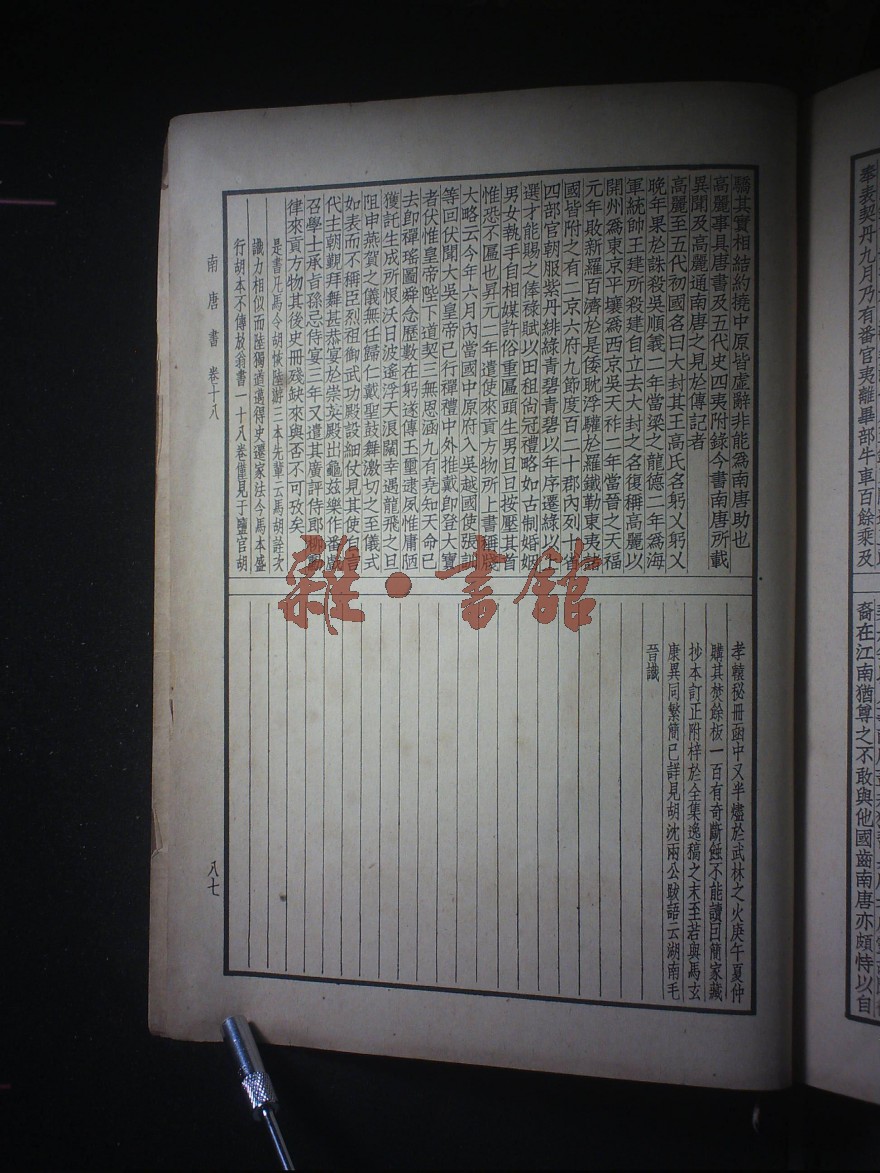 驕其實相結約撓中原皆虛辭非能爲南唐助也
高麗事具唐書及五代史四夷附錄今書南唐所載
異聞及高麗通南唐之見於傳記者
高麗至五代初國名曰大封其王高氏名躬乂躬乂
晚年果於誅殺吳順義二年當梁之龍德二年爲海
軍統帥王建所殺建自立去大封之名復稱高麗以
開州爲東京平壤爲西京吳天祚二年當晉之天福
元年敗新羅百濟於是倭耽浮驩於羅鐵勒東夷諸
國皆附之有二京六府九節度百二十郡內列十省
四部官朝服紫丹緋綠青碧青碧以年序遷綠以上
選才能賜之俸祿賦以田租尚冠禮略如古制婚姻
男女執手自相媒許俗重匾頭生男旦旦按壓其首
惟恐不匾也昇元二年遣使來貢方物所上書稱牋
大略云今年六月內當國中原府入吳越國使張訓
等回伏聞大吳皇帝已行禪禮中外推戴即登大寶
者伏惟皇帝陛下道契三無恩涵九有堯知天命已
去即禪瑤圖舜念歷數在躬遂傳玉璽逮夙惟庸陋
獲託生成所恨沃日波遙浮天浪闊幸遇龍飛之旦
阻申燕賀之儀無任歸仁戴聖鼓舞激切之至儀式
如表而不稱臣烈祖御武功殿設細仗見其使自言
代主朝覲拜舞甚恭宴於崇英殿出龜茲樂作番戲
召學士承旨孫忌侍宴三年又遣其廣評侍郎柳勳
律來貢方物其後史冊殘缺來與否不可攷矣
是書凡馬令胡恢陸游三本先輩云馬胡詮次
識力相似而陸獨遒邁得史遷家法今馬本盛
行胡本不傳放翁書一十八卷僅見于鹽官胡
南唐書 卷十八
八七
孝轅秘冊函中又半燼於武林之火庚午夏仲
購其焚餘板一百有奇斷蝕不能讀因簡家藏
抄本訂正附梓於全集逸稿之末至若與馬玄
康異同繁簡已詳見胡沈兩公跋語云湖南毛
晉識
奉表契丹九月乃有番官夷離畢部牛車百餘乘及
裔在江南猶尊之不敢與他國齒南唐亦頗恃以自
雜·書館